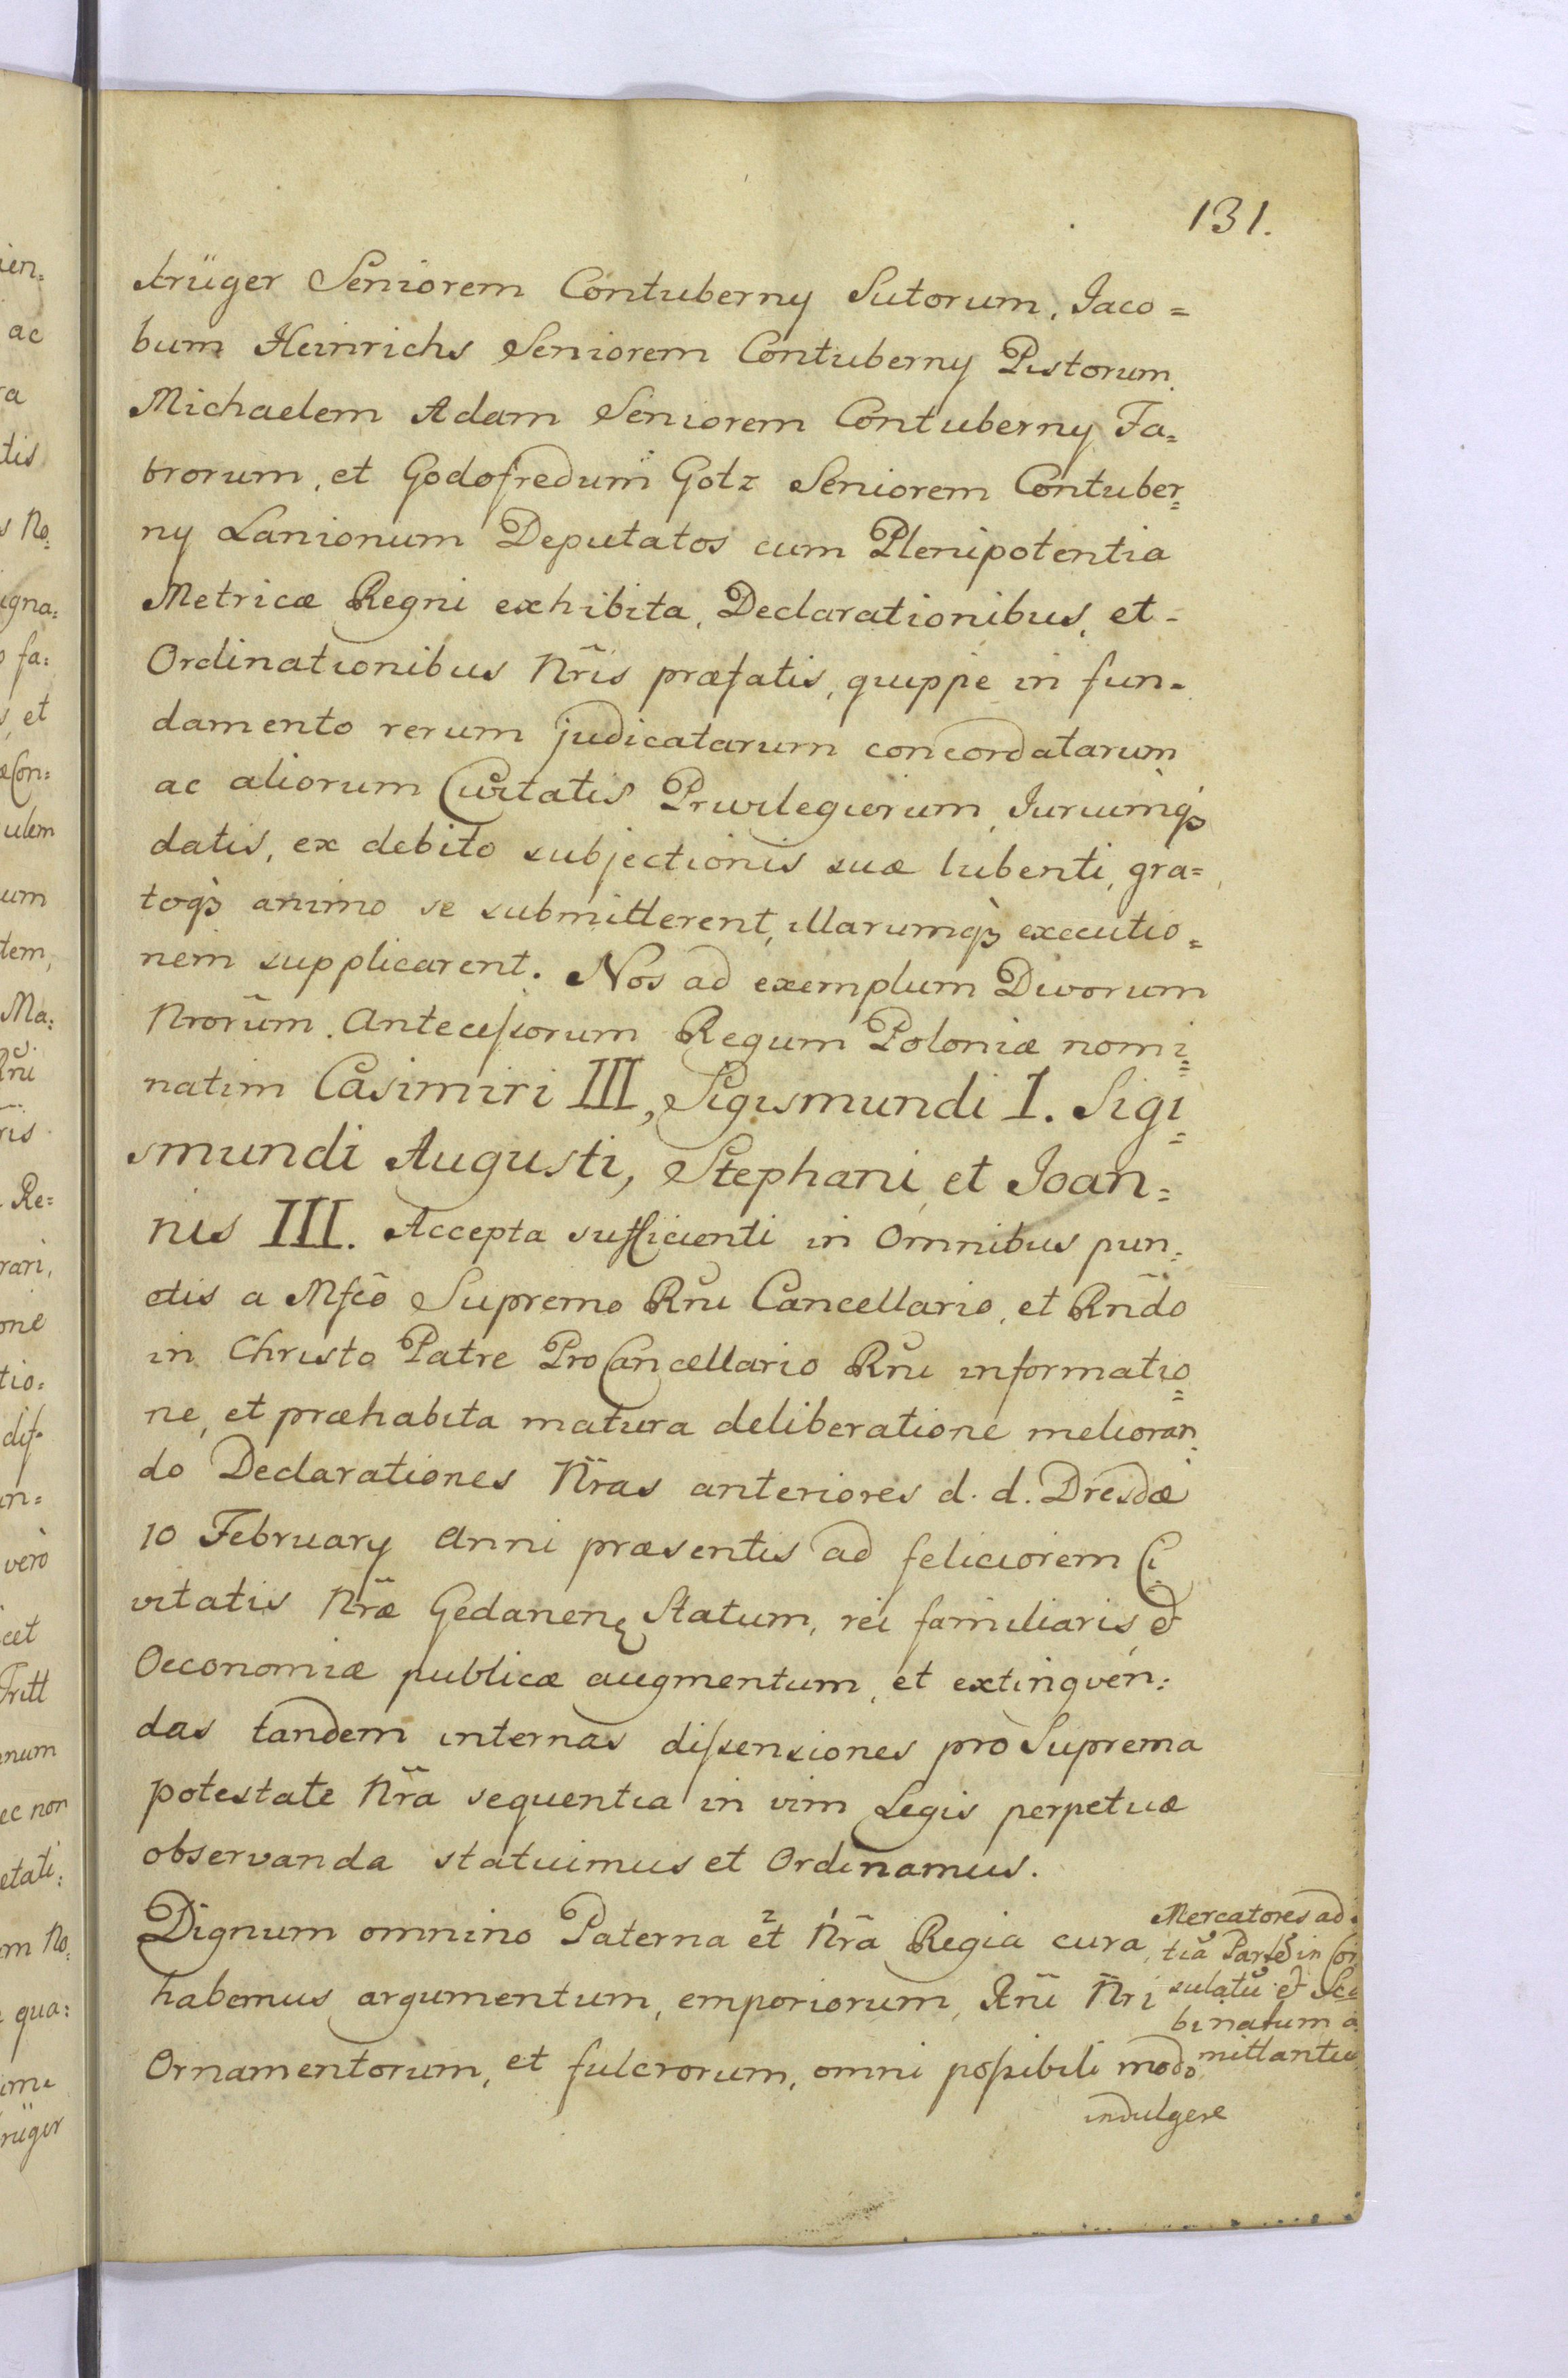 131.
Krüger Seniorem Contuberny Sutorum, Jaco=
bum Heinrichs Seniorem Contuberny Pistorum.
Michaelem Adam Seniorem Contuberny Fa=
brorum, et Godofredum Gotz Seniorem Contuber=
ny Lanionum Deputatos cum Plenipotentia
Metricæ Regni exhibita, Declarationibus, et-
Ordinationibus Nr̃is præfatis, quippe in fun=
damento rerum judicatarum concordatarum
ac aliorum Civitatis Privilegiorum, Juriumq3
datis, ex debito subjectionis suæ lubenti, gra=
toq3 animo se submitterent, illarumq3 executio=
nem supplicarent. Nos ad exemplum Divorum
Nrorũm Antecessorum Regum Poloniæ nomi=
natim Casimiri III, Sigismundi I. Sigi=
smundi Augusti, Stephani, et Joan=
nis III. Accepta sufficienti in Omnibus pun=
ctis a Mfcõ Supremo Rñi Cancellario, et Rñdo
in Christo Patre ProCancellario Rñi informatio=
ne, et præhabita matura deliberatione melioran=
do Declarationes Nr̃as anteriores d. d. Dresdæ
10 February Anni præsentis ad feliciorem Ci=
vitatis Nr̃æ Gedanenę Statum, rei familiaris, &
Oeconomiæ publicæ augmentum, et extinguen=
das tandem internas dissensiones pro Suprema
potestate Nr̃a sequentia in vim Legis perpetuæ
observanda statuimus et Ordinamus.
Dignum omnino Paterna et Nr̃a Regia cura
habemus argumentum, emporiorum, Rñi Nr̃i
Ornamentorum, et fulcrorum, omni possibili modo
indulgere
Mercatores ad
Partẽ in Con
sulatũ & Sca
binatum a
mittantur